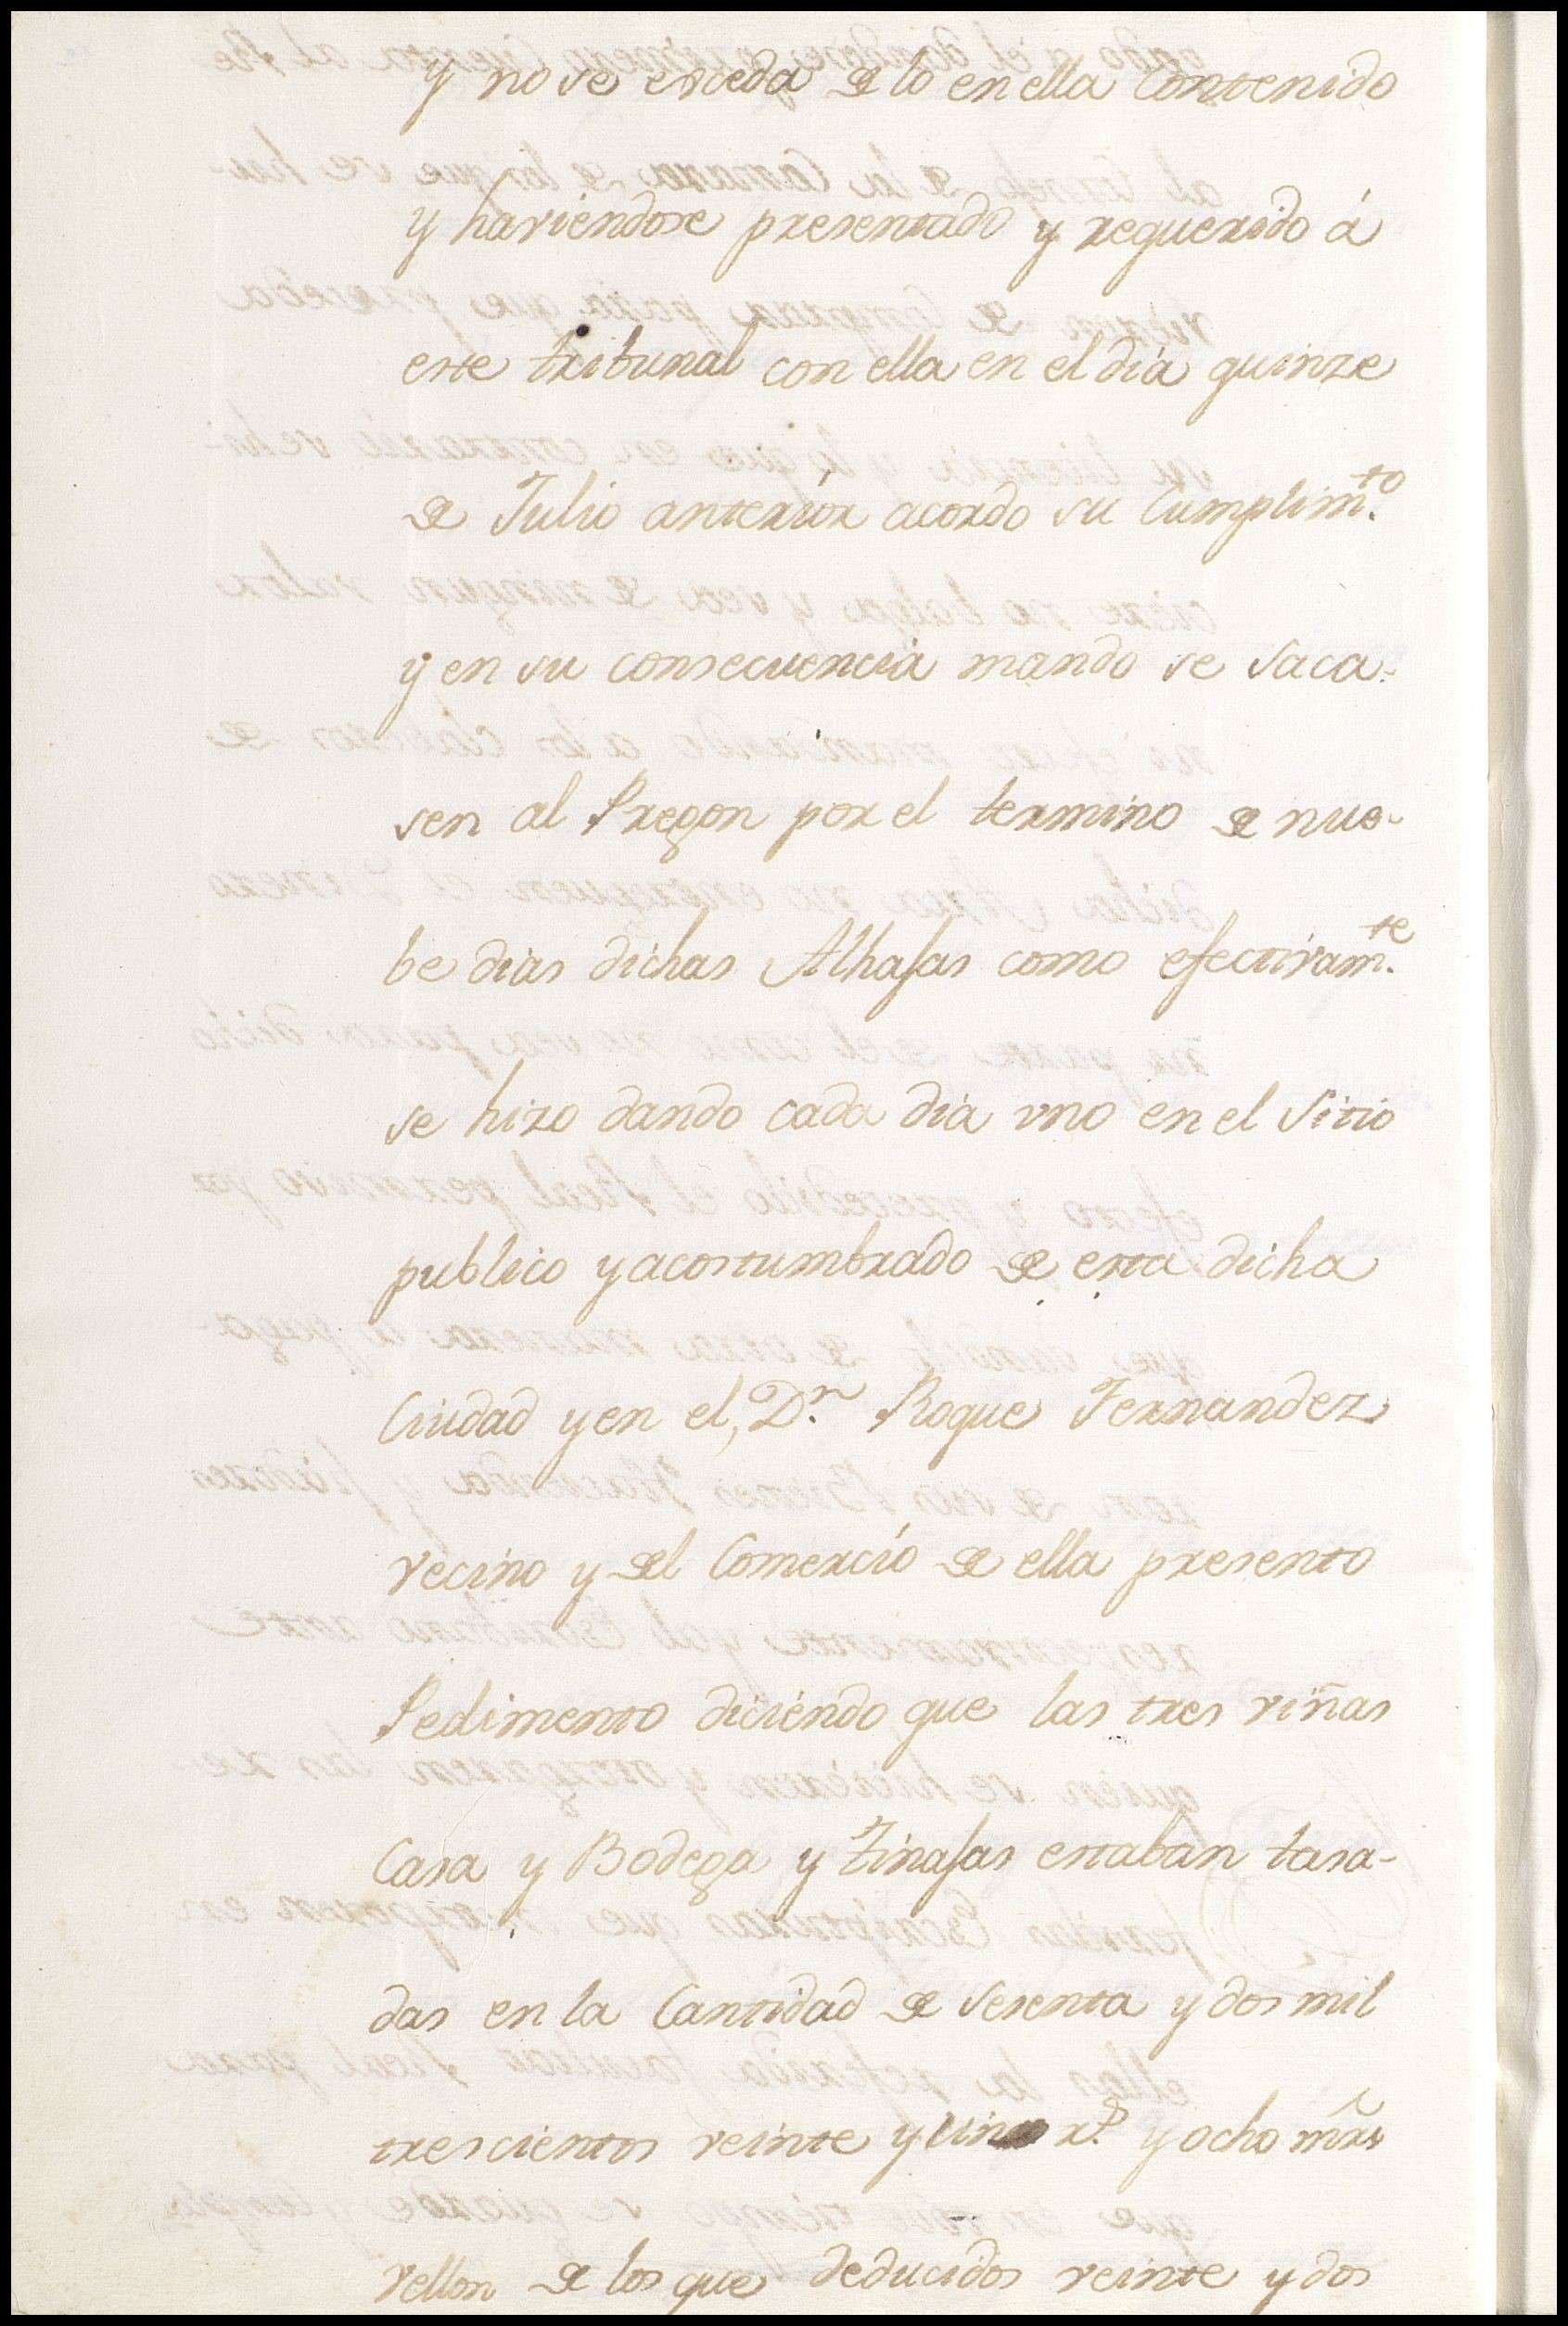 y no se exceda de lo en ella contenido
y haviendose presentado y requerido á
este tribunal con ella en el dia quinze
de Julio anterior acordo su Cumplim.to
y en su consecuencia mando se saca-
sen al Pregon por el termino de nue-
be dias dichas Alhajas como efectivam.te
se hizo dando cada dia vno en el sitio
publico y acostumbrado de esta dicha
Ciudad y en el, D.n Roque Fernandez
vecino y del Comercio de ella presento
Pedimento diciendo que las tres viñas
Casa y Bodega y Tinajas estaban tasa-
das en la Cantidad de sesenta y dos mil
trescientos veinte y r.s y ocho mrs
vellon de los que deducidos veinte y dos